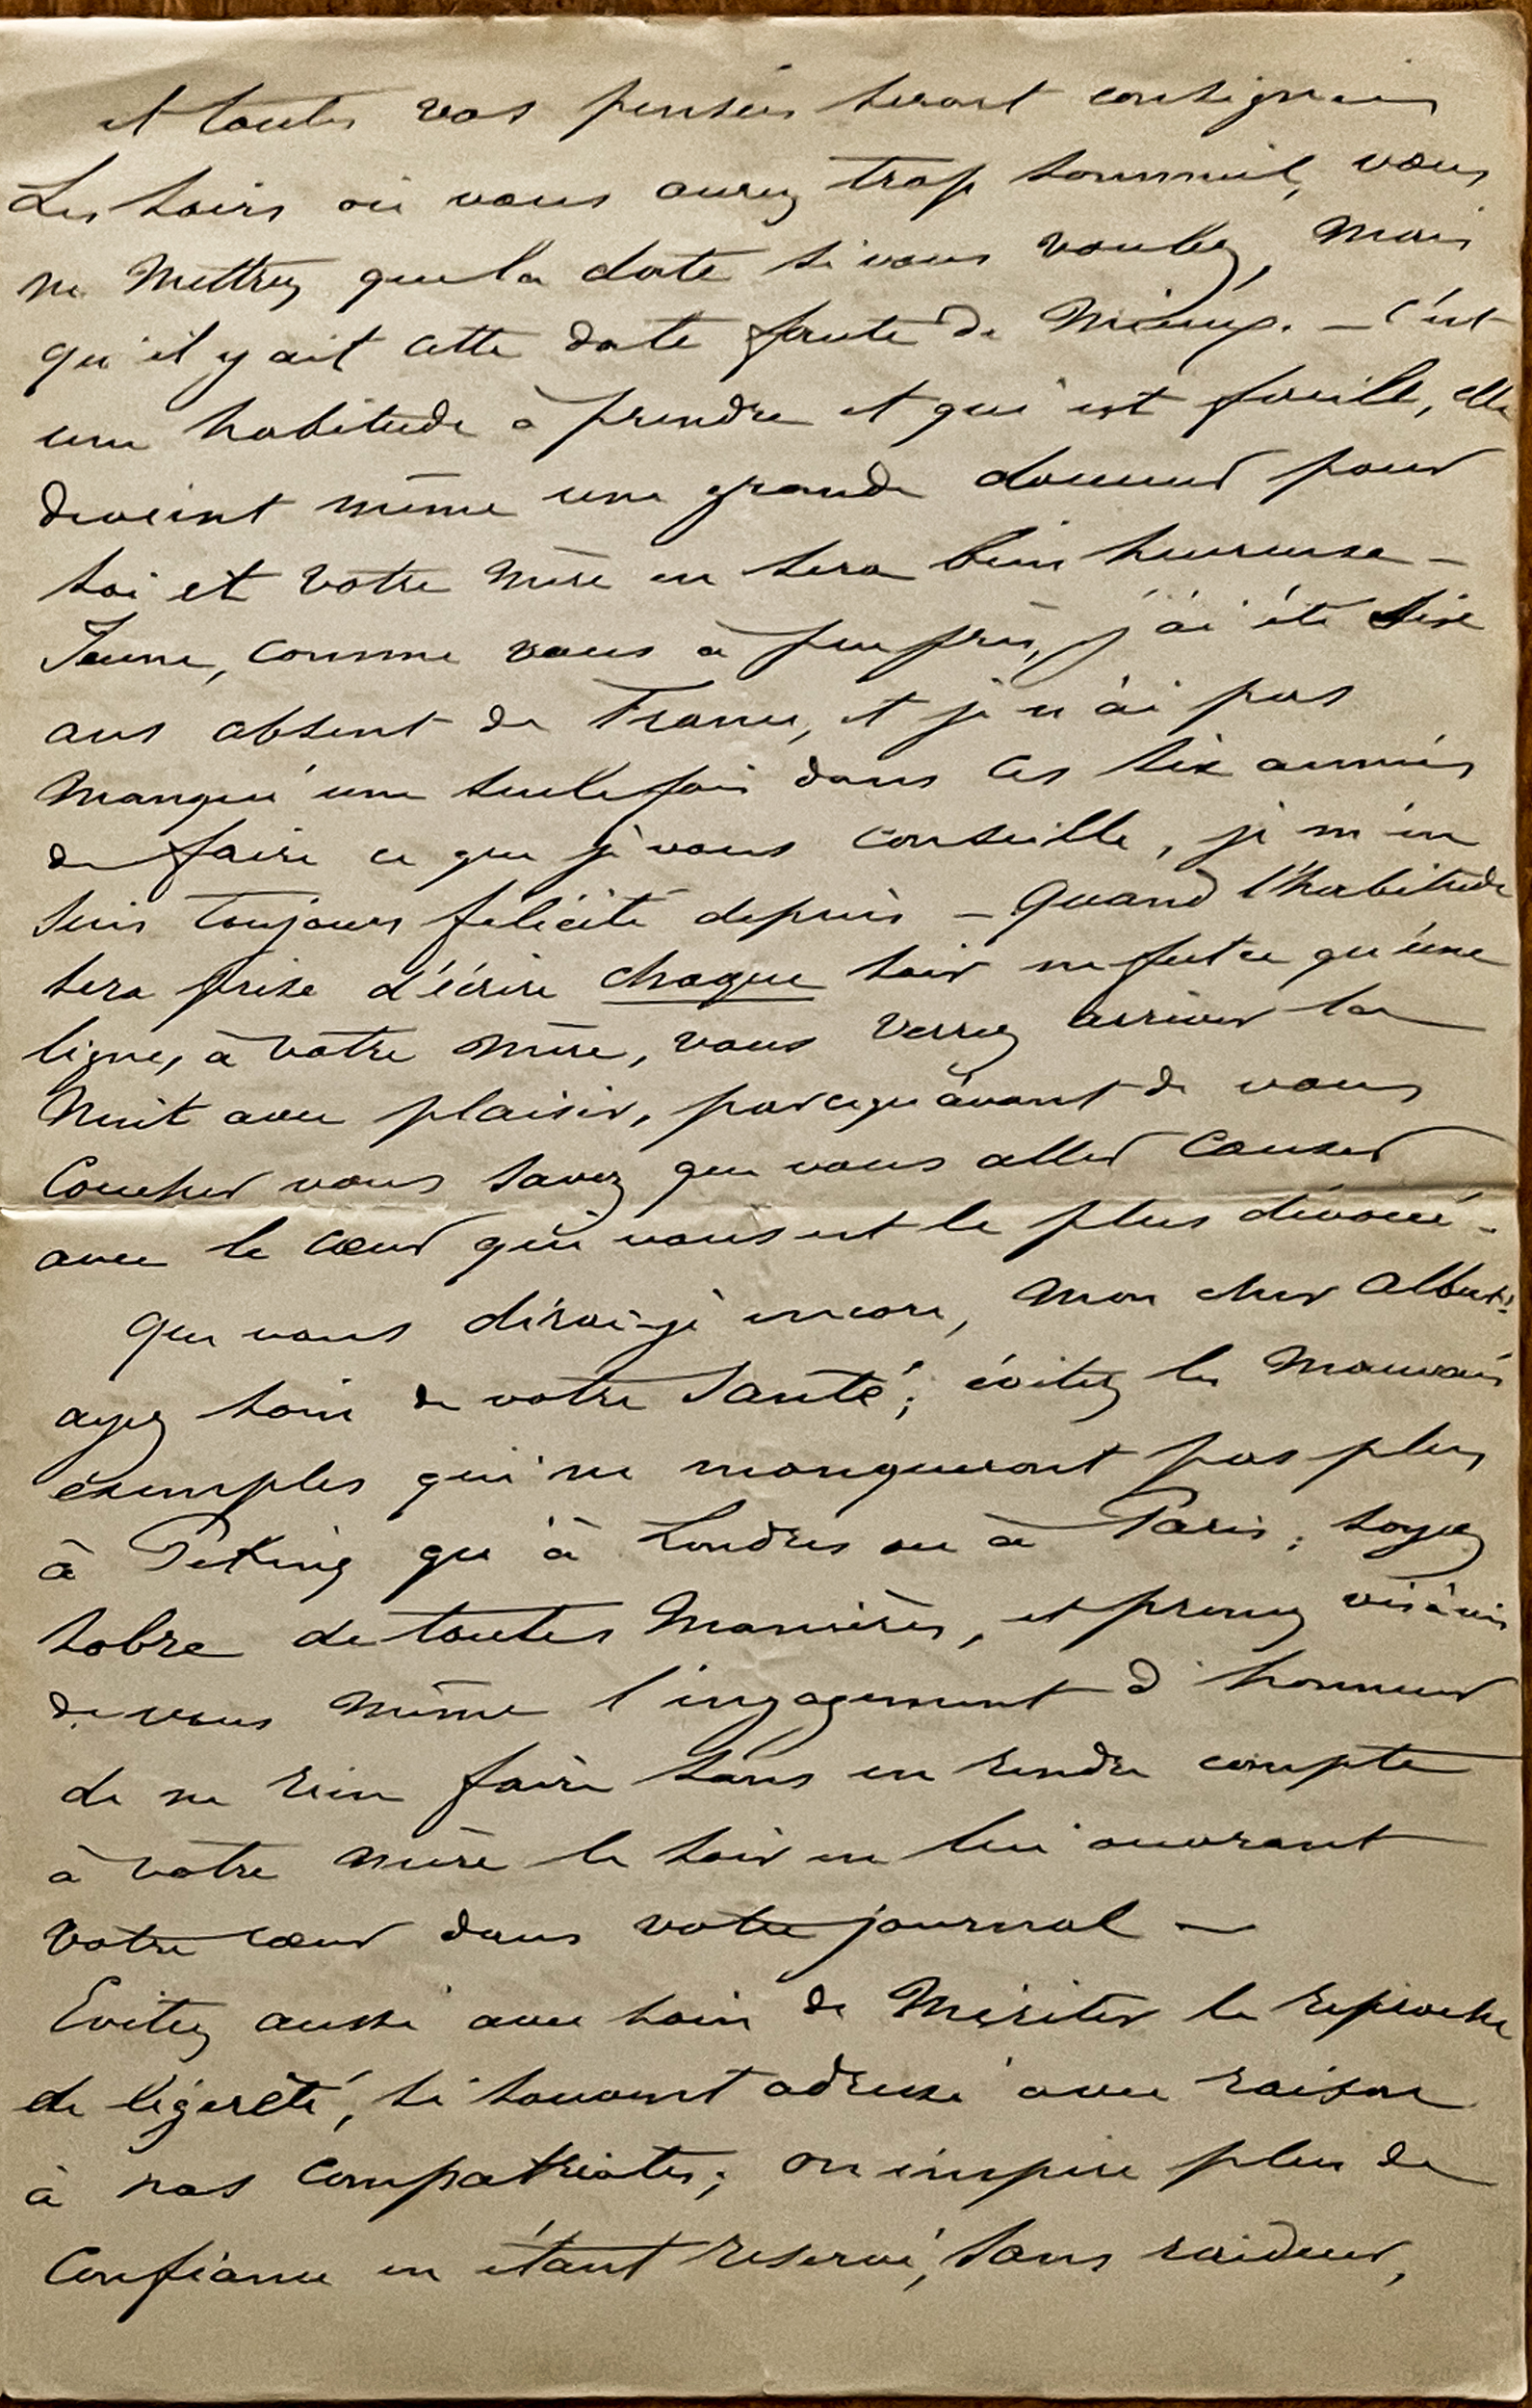 et toutes vos pensées seront consignées
Les soirs où vous aurez trop sommeil, vous
ne mettrez que la date si vous voulez, mais
qu'il y ait cette date faute de mieux. — C'est
une habitude à prendre et qui est facile, elle
devient même une grande douceur pour
soi et votre mère en sera bien heureuse —
Jeune, comme vous à peu près, j'ai été six
ans absent de France, et je n'ai pas
manqué une seule fois dans ces six années
de faire ce que je vous conseille, je m'en
suis toujours félicité depuis — Quand l'habitude
sera prise d'écrire chaque soir ne fut ce qu'une
ligne, à votre mère, vous verrez arriver la
nuit avec plaisir, parcequ'avant de vous
coucher vous savez que vous aller causer
avec le cœur qui vous est le plus dévoué —
Que vous dirai-je encore, mon cher Albert?
ayez soin de votre santé; évitez les mauvais
exemples qui ne manqueront pas plus
à Peking qu'à Londres ou à Paris; soyez
sobre de toutes manières, et prenez vis à vis
de vous même l'engagement d'honneur
de ne rien faire sans en rendre compte
à votre mère le soir en lui ouvrant
votre cœur dans votre journal —
Evitez aussi avec soin de mériter le reproche
de légèreté, si souvent adressé avec raison
à nos compatriotes; on inspire plus de
confiance en étant reservé, sans raideur,